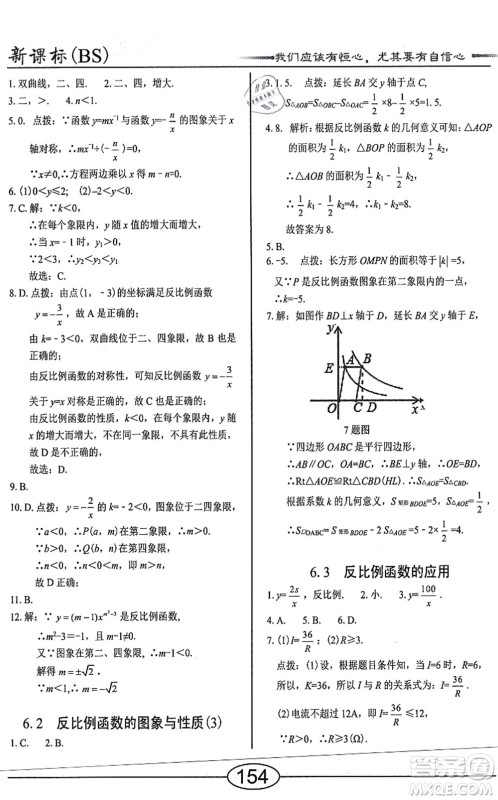 新课标(BS)
我们应该有恒心，尤其要有自信心
1. 双曲线，二、四.  2. 二、四，增大.
3. 二，>.  4. n＜1.
5. 0.  点拨：∵函数 y=mx⁻¹与函数 y=-n/x的图象关于 x
轴对称，∴mx⁻¹=-(-n/x)，
∵x≠0，∴方程两边同乘以x，得m-n=0.
6. (1)0＜y≤2；  (2)-2＜y＜0.
7. C. 解：∵k＜0，
∴在每个象限内，y随x值的增大而增大，
∴当 x=-1时，y₁＞0，
∵2＜3，∴y₂＜y₃＜y₁.
故选：C.
8. D. 点拨：由点(1，-3)的坐标满足反比例函数
y=-3/x，故 A 是正确的；
由k=-3＜0，双曲线位于二、四象限，故 B 也是
正确的；
由反比例函数的对称性，可知反比例函数y=-3/x
关于y=x对称是正确的，故C也是正确的；
由反比例函数的性质，k＜0，在每个象限内，y随x
的增大而增大，不在同一象限，不具有此性质，故 D
是不正确的.
故选：D.
9. B.
10. D. 点拨：∵y=-2/x的图象位于第二、四象限，
∵a＜0，∴P(a，m)在第二象限，∴m＞0；
∵b＞0，∴Q(b，n)在第四象限，∴n＜0.
∴n＜0＜m，
11. B.
12. 解：∵y=(m-1)x^(m²-3)是反比例函数，
∴m²-3=-1，且m-1≠0，
又∵图象在第二、四象限，∴m-1＜0，
解得m=±√2.
∵m＜1，∴m=-√2.
6.2  反比例函数的图象与性质(3)
1. C.  2. B.
3. 1.5.  点拨：延长 BA交y轴于点C，
S△AOB=S△OBC-S△OAC=1/2×8-1/2×5=1.5.
4. 8.  解析：根据反比例函数k的几何意义可知：△AOP
的面积为1/2 k₁，△BOP的面积为1/2 k₂，
∴△AOB的面积为1/2 k₁-1/2 k₂，∴1/2 k₁-1/2 k₂=4，
∴k₁-k₂=8.
故答案为8.
5. B.
6. -5.  点拨：长方形OMPN的面积等于|k|=5，
又∵P是反比例函数图象在第二象限的一点，
∴k=-5.
7. 解：如图作BD⊥x轴于D，延长BA交y轴于E，
y
E A B
O C D x
7题图
∵四边形OABC是平行四边形，
∴AB∥OC，OA=BC，∴BD=OE，
∴Rt△AOE≌Rt△CBD(HL)，∴S△AOE=S△CBD.
根据系数k的几何意义，S矩形BDOE=5，S△AOE=1/2×2
=1，
∴S□OABC=S矩形BDOE-S△AOE=5-2×1/2=4.
6.3  反比例函数的应用
1. y=2s/x.  2. 小.  3. y=100/x.
4. A.  5. C.  6. D.
7. (1)I=36/R；  (2)R≥3.
点拨：(1)根据题意条件，当I=6时，R=6，
所以，K=36，所以I与R的关系式为：I=36/R.
(2)电流不能超过12A，即I=36/R≤12，
∵R＞0，∴R≥3(Ω).
154
答案圈
MXQE.COM